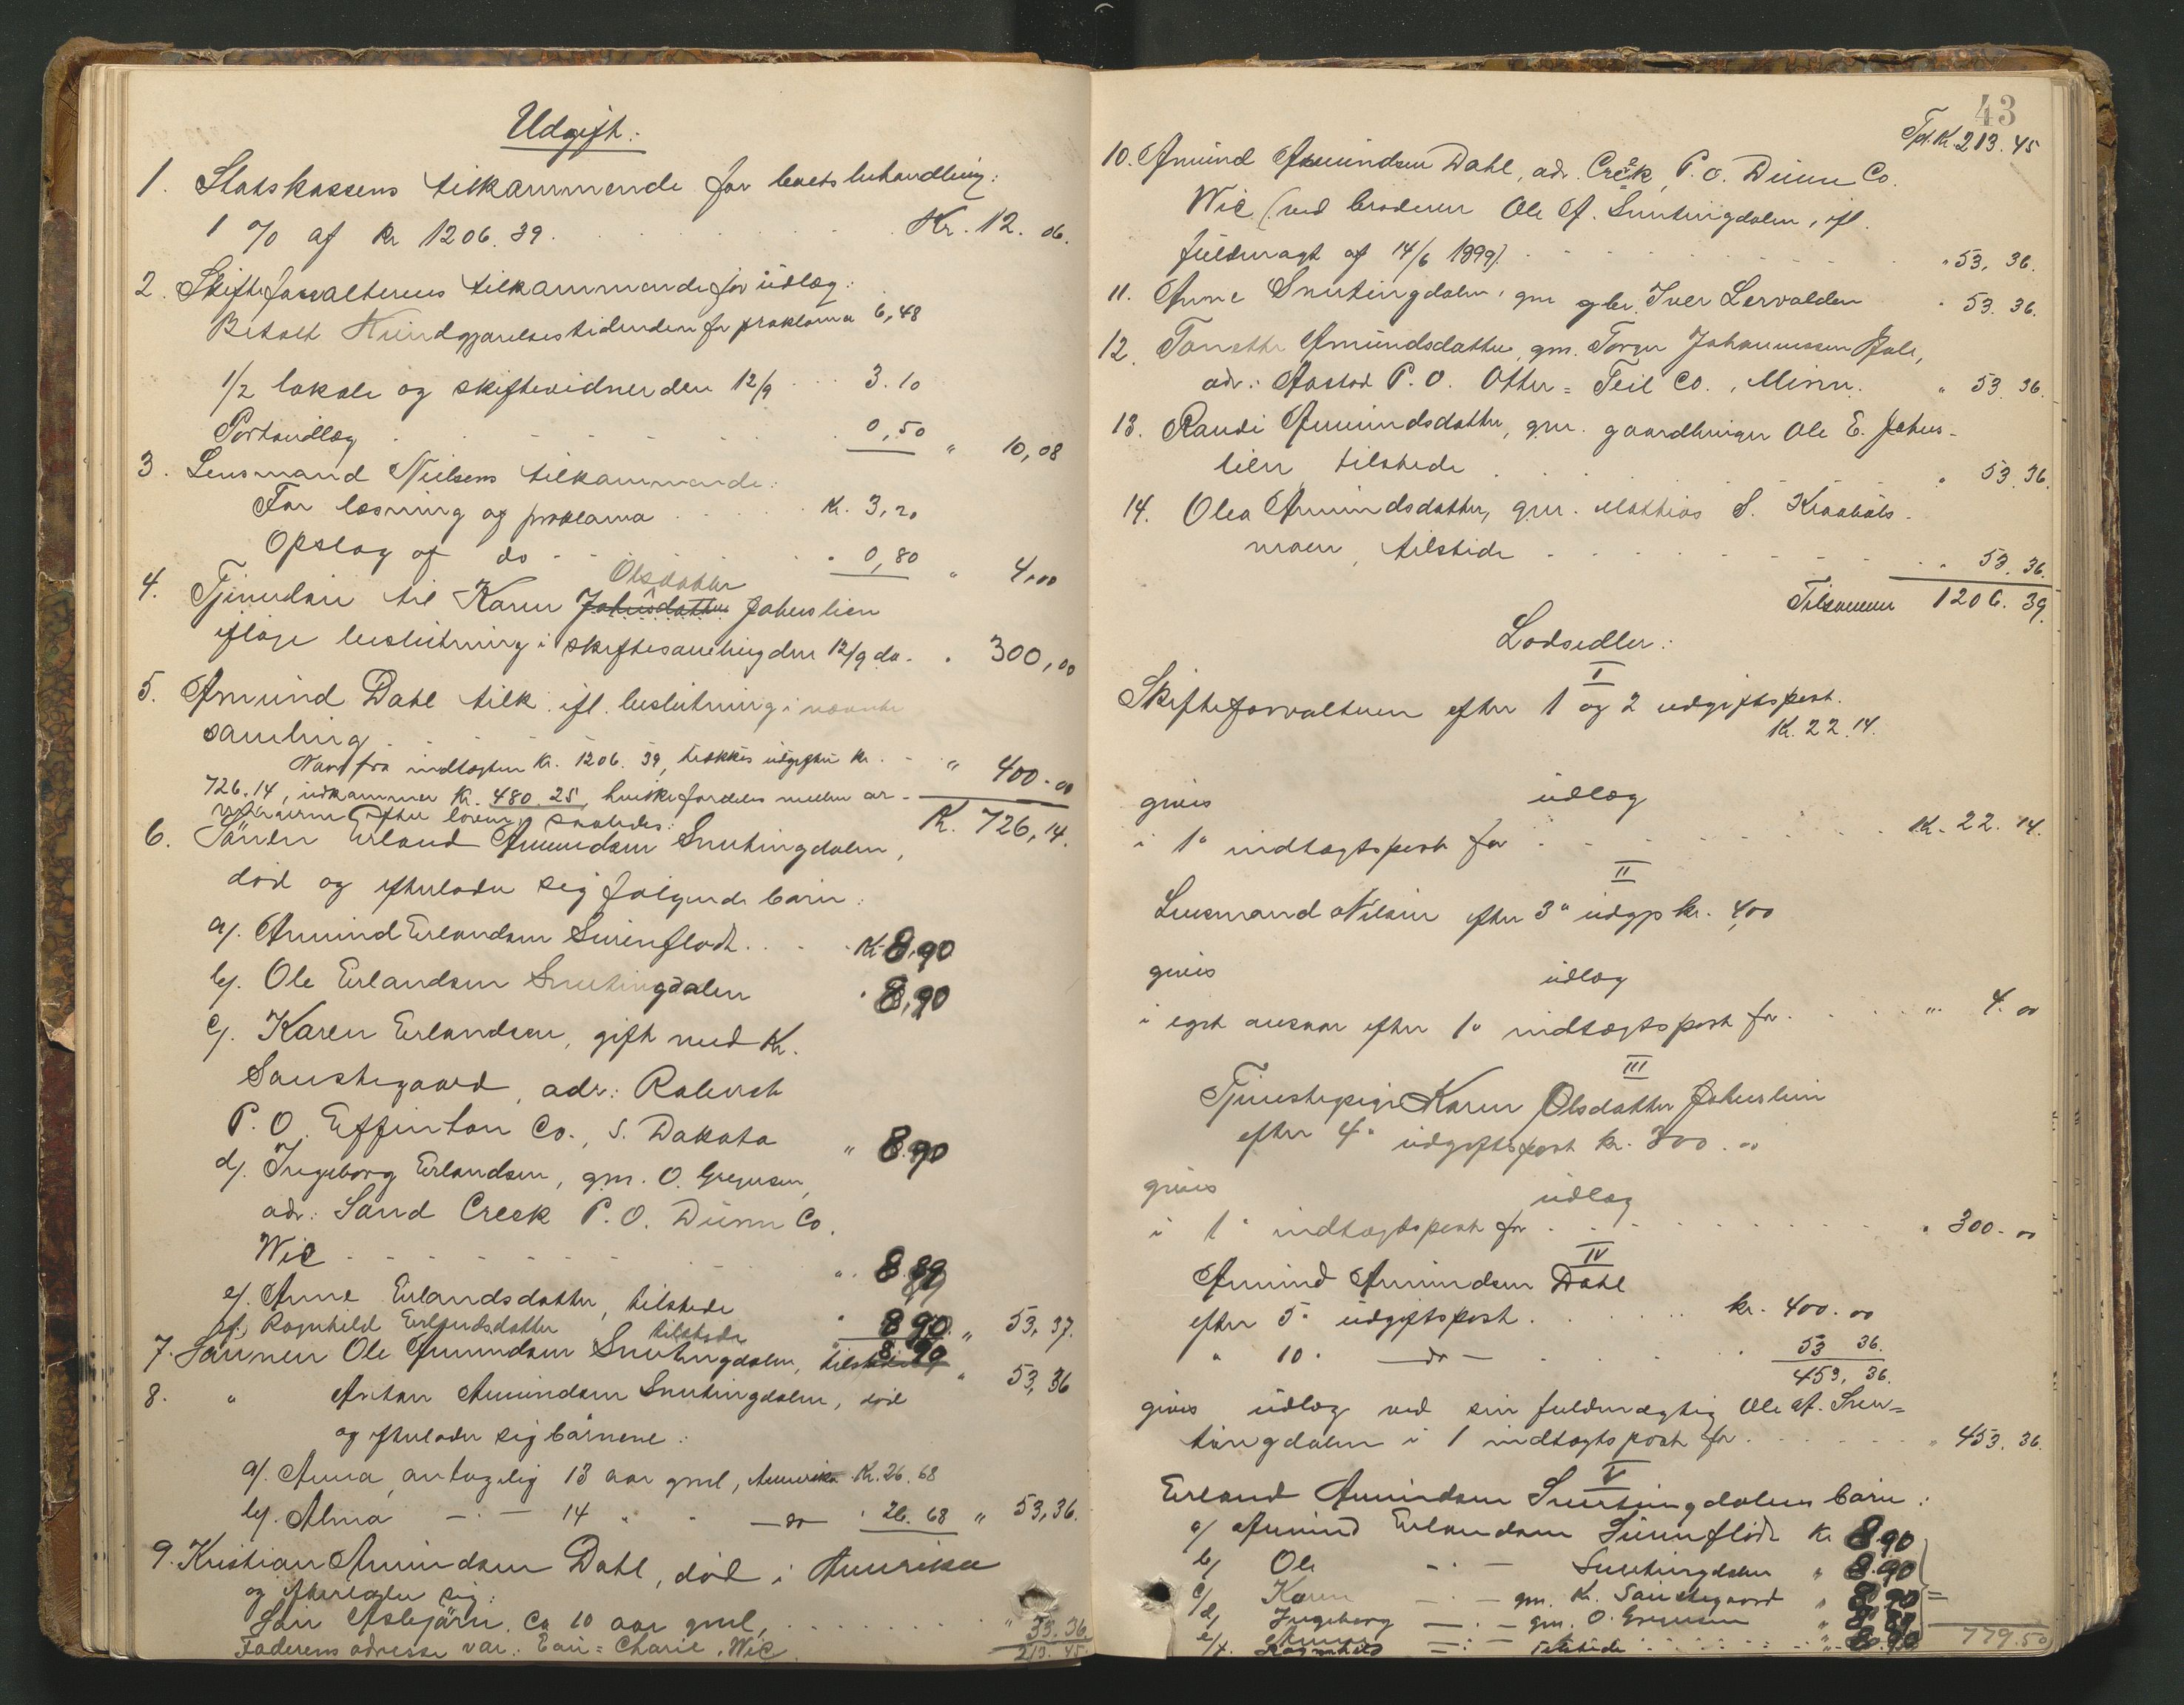 Udgift:
1. Statskassens tilkommende for boets behandling:
1 % af kr 1206.39 . . . Kr. 12.06.
2. Skifteforvalterens tilkommende for udlæg:
Betalt Kundgjørelsestidenden for proklama 6,48
1/2 lokale og skiftevidner den 12/9 . . . 3.10
Portoudlæg . . . 0,50 " 10,08
3. Lensmand Nielsens tilkommende:
For læsning af proklama . . . Kr. 3,20
Opslag af do . . . " 0,80 " 4,00
Olsdatter
4. Tjenerløn til Karen Johnsdatter Johnslien
ifølge beslutning i skiftesamling den 12/9 da. . 300,00
5. Amund Dahl tilk. ifl. beslutning i nævnte
samling . . . " 400.00
Naar fra indtægten kr. 1206.39, trækkes udgifter kr.
726.14, udkommer kr. 480.25, hvilke fordeles mellem ar-
vingerne efter loven saaledes: K. 726,14.
6. Sønnen Erland Amundsen Snertingdalen,
død og efterlader sig følgende børn:
a/. Amund Erlandsen Svenflodt . . . Kr 8,90
b/. Ole Erlandsen Snertingdalen " 8,90
c/. Karen Erlandsen, gift med K.
Saustegaard, adr: Rolerch
P. O. Effinton Co., S. Dakota " 8.90
d/. Ingeborg Erlandsen, gm. O. Gregersen,
adr: Sand Creek P. O. Dunn Co.
Wis . . . " 8.89
e/. Anne Erlandsdatter, tilstede " 8.90 " 53,37.
f/. Ragnhild Erlandsdatter tilstede 8.90
7. Sønnen Ole Amundsen Snertingdalen, tilstede " 53,36
8. " Anton Amundsen Snertingdalen, død
og efterlader sig børnene:
a/. Anna, antagelig 13 aar gml, Amerika Kr. 26.68
b/. Alma — · — 14 " " — do — " 26.68 " 53,36.
9. Kristian Amundsen Dahl, død i Amerika
og efterlader sig:
Søn Asbjørn, ca 10 aar gml, . . . " 53.36.
Faderens adresse var: Eau=Charie, Wis. 213.45
43
Tpt. Kr. 213.45
10. Amund Amundsen Dahl, adr. Creek, P. O. Dunn Co.
Wis (ved broderen Ole A. Snertingdalen, ifl.
fuldmagt af 14/6 1899). . . . " 53,36.
11. Anne Snertingdalen, gm gbr. Iver Lervalden " 53.36.
12. Tonette Amundsdatter, gm. Torger Johannessen Dale,
adr: Aastad P. O. Otter=Teil Co., Minn. " 53.36.
13. Randi Amundsdatter, gm. gaardbruger Ole E. Johns-
lien, tilstede . . . " 53.36.
14. Olea Amundsdatter, gm. Mathias S. Kraabøls-
moen, tilstede . . . " 53.36.
Tilsammen 1206.39.
Lodsedler:
I
Skifteforvalteren efter 1 og 2 udgiftspost.
Kr. 22.14.
gives udlæg
i 1" indtægtspost for . . . Kr. 22.14.
II
Lensmand Nilsen efter 3" udgp kr. 4,00
gives udlæg
i eget ansvar efter 1" indtægtspost for . . . " 4.00
III
Tjenestepige Karen Olsdatter Johnslien
efter 4" udgiftspost kr. 300.00
gives udlæg
i 1" indtægtspost for . . . " 300.00
IV
Amund Amundsen Dahl
efter 5" udgiftspost . . . kr. 400.00
" 10" — do — . . . 53 36.
453,36.
gives udlæg ved sin fuldmægtig Ole A. Sner=
tingdalen i 1 indtægtspost for . . . " 453.36.
V
Erland Amundsen Snertingdalens børn:
a/ Amund Erlandsen Svenflodt Kr 8.90
b/ Ole — · — Snertingdalen " 8.90
c/ Karen — · — gm. K. Saustegaard " 8.90 =
d/ Ingeborg — · — gm. O. Gregersen " 8.89
e/ Anne
f. Ragnhild — · — tilstede . . . " 8.90 779.50